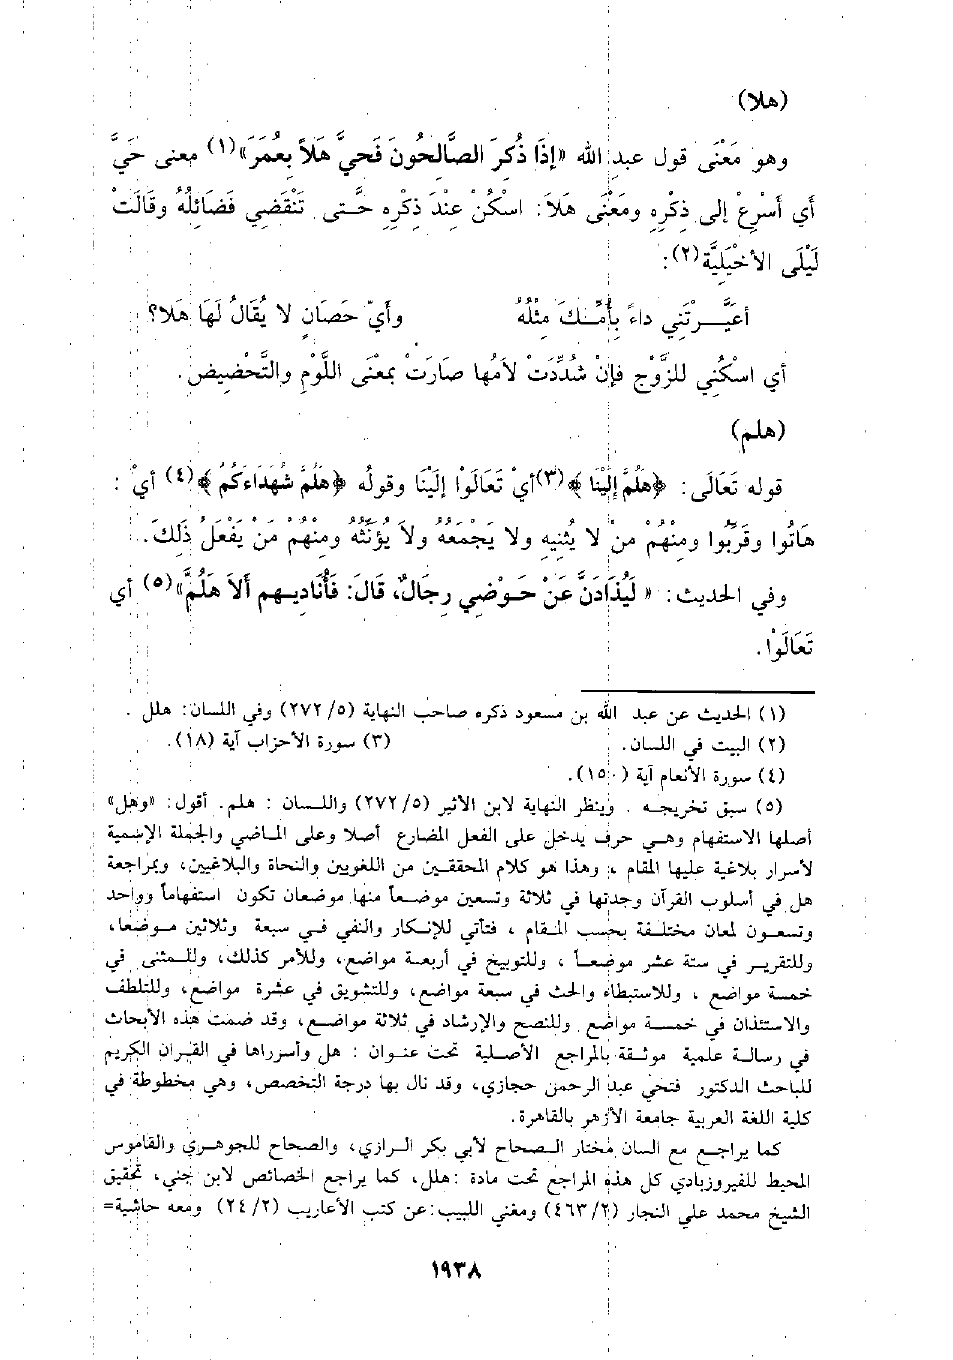 (هلا)
وهو مَعْنَى قول عبد الله «إذَا ذُكِرَ الصَّالِحُونَ فَحيَّ هَلاً بِعُمَرَ»(١) معنى حَيَّ
أي أَسْرِعْ إلى ذِكْرِهِ ومَعْنَى هَلاَ: اسْكُنْ عِنْدَ ذِكْرِهِ حتَّى تَنْقَضِي فَضَائِلُهُ وقَالَتْ
لَيْلَى الأخْيَلِيَّة(٢):
أعَيَّرْتَنِي داءً بِأُمِّكَ مِثْلُهُ وأيّ حَصَانٍ لا يُقَالُ لَهَا هَلا؟
أي اسْكُنِي للزَّوْجِ فإنْ شُدِّدَتْ لاَمُها صَارَتْ بمعْنَى اللَّوْمِ والتَّحْضِيضِ.
(هلم)
قوله تَعَالَى: ﴿هَلُمَّ إِلَيْنَا﴾(٣) أيْ تَعَالَوْا إلَيْنَا وقولُه ﴿هَلُمَّ شُهَدَاءَكُمُ﴾(٤) أيْ:
هَاتُوا وقَرِّبُوا ومِنْهُمْ مَنْ لا يُثَنِيهِ ولا يَجْمَعُهُ ولاَ يُؤَنِّثُه ومِنْهُمْ مَنْ يَفْعَلُ ذَلِكَ.
وفي الحديث: «لَيُذَادَنَّ عَنْ حَوْضِي رِجَالٌ، قَالَ: فَأُنَاديهم ألاَ هَلُمَّ»(٥) أي
تَعَالَوْا.
(١) الحديث عن عبد الله بن مسعود ذكره صاحب النهاية (٥/ ٢٧٢) وفي اللسان: هلل.
(٢) البيت في اللسان. (٣) سورة الأحزاب آية (١٨).
(٤) سورة الأنعام آية (١٥٠).
(٥) سبق تخريجه. وينظر النهاية لابن الأثير (٥/ ٢٧٢) واللسان: هلم. أقول: «وهل»
أصلها الاستفهام وهي حرف يدخل على الفعل المضارع أصلا وعلى الماضي والجملة الإسمية
لأسرار بلاغية عليها المقام، وهذا هو كلام المحققين من اللغويين والنحاة والبلاغيين، وبمراجعة
هل في أسلوب القرآن وجدتها في ثلاثة وتسعين موضعاً منها موضعان تكون استفهاماً وواحد
وتسعون لمعان مختلفة بحسب المقام، فتأتي للإنكار والنفي في سبعة وثلاثين موضعا،
وللتقرير في ستة عشر موضعاً، وللتوبيخ في أربعة مواضع، وللأمر كذلك، وللمثنى في
خمسة مواضع، وللاستبطاء والحث في سبعة مواضع، وللتشويق في عشرة مواضع، وللتلطف
والاستئذان في خمسة مواضع. وللنصح والإرشاد في ثلاثة مواضع، وقد ضمت هذه الأبحاث
في رسالة علمية موثقة بالمراجع الأصلية تحت عنوان: هل وأسرراها في القران الكريم
للباحث الدكتور فتحي عبد الرحمن حجازي، وقد نال بها درجة التخصص، وهي مخطوطة في
كلية اللغة العربية جامعة الأزهر بالقاهرة.
كما يراجع مع السان مختار الصحاح لأبي بكر الرازي، والصحاح للجوهري والقاموس
المحيط للفيروزبادي كل هذه المراجع تحت مادة: هلل، كما يراجع الخصائص لابن جني، تحقيق
الشيخ محمد علي النجار (٢/ ٤٦٣) ومغني اللبيب: عن كتب الأعاريب (٢/ ٢٤) ومعه حاشية=
١٩٣٨